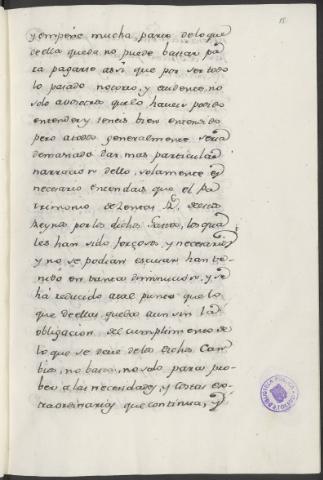 15
y enpeño mucha parte de lo que
de ella queda no puede bastar pa
ra pagarlo asi que por ser todo
lo pasado notorio, y evidente no
solo a vosotros que lo haveis podido
entender y teneis bien entendido
pero a todos generalmente seria
demasiado dar mas particular
narracion dello, solamente es
necesario entendais que el Pa
trimonio de Rentas Rs. destos
Reynos por los dichos gastos, los qua
les han sido forçosos y necesarios
y no se podian escusar han ve
nido en tanta diminucion, y se
há reducido atal punto que lo
que de ellas queda aun sin la
obligacion del cumplimiento de
lo que se deve de los dichos Cam
bios, no basta, no solo para pro
beer a las necesidades, y costas ex
traordinarias que continua, y
BIBLIOTECA PUBLICA
TOLEDO